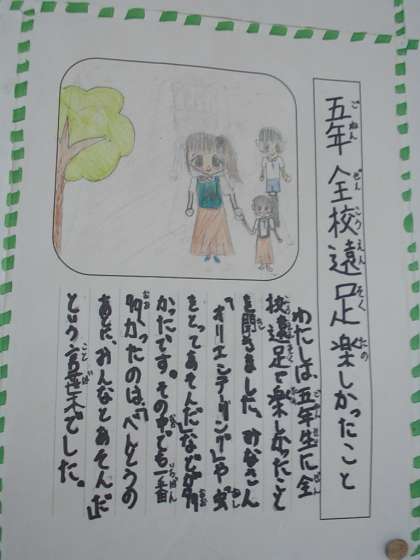 五年 全校遠足 楽しかったこと
わたしは、五年生に全
校遠足で楽しかったこと
を聞きました。みなさん
「オリエンテーリング」や「虫
をとってあそんだ」などが多
かったです。その中でも一番
多かったのは、「べんとうの
あとに、みんなとあそんだ」
という言葉でした。